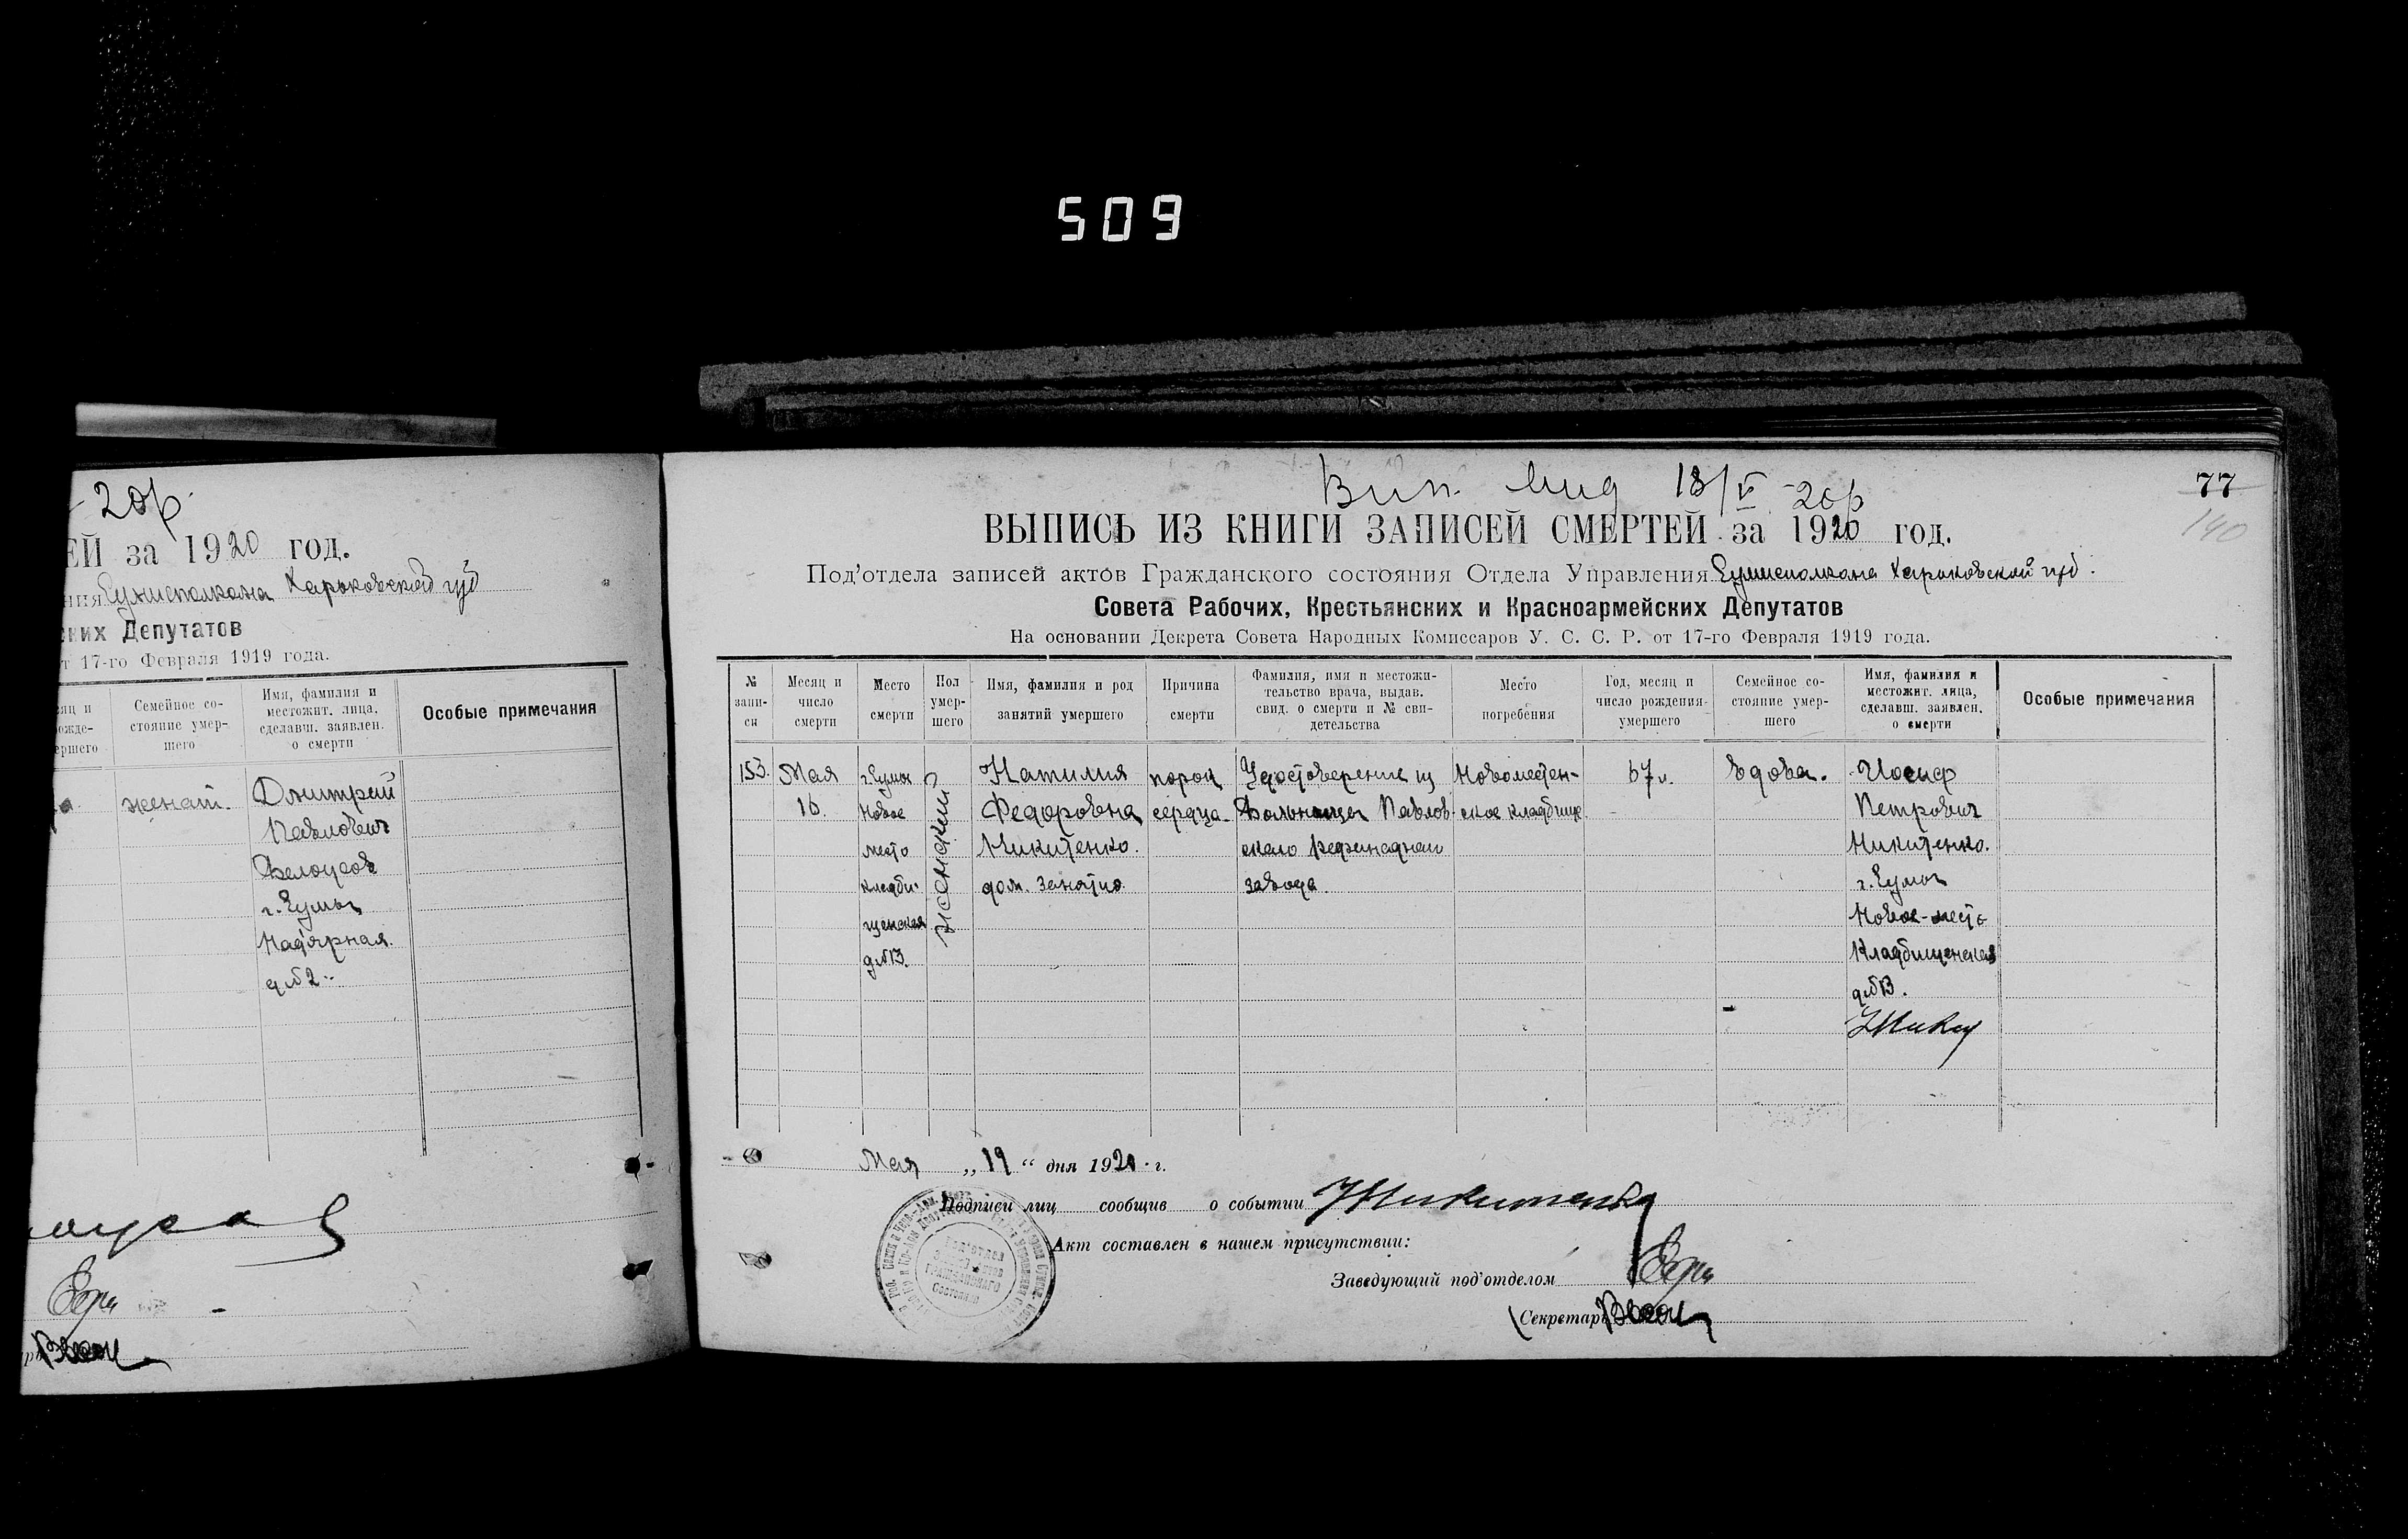 509
- 20 р.
ЕЙ за 1920 год.
ния Сумисполкома Харьковской губ
ских Депутатов
от 17-го Февраля 1919 года.
Семейное со-
стояние умер-
шего
Имя, фамилия и
местожит. лица,
сделавш. заявлен.
о смерти
Особые примечания
женат.
Дмитрий
Павлович
Белоусов
г. Сумы
Над'ярная.
д. № 2
77
140
Вип. 18/V - 20 р
ВЫПИСЬ ИЗ КНИГИ ЗАПИСЕЙ СМЕРТЕЙ за 1920 год.
Под'отдела записей актов Гражданского состояния Отдела Управления Сумисполкома Харьковской губ.
Совета Рабочих, Крестьянских и Красноармейских Депутатов
На основании Декрета Совета Народных Комиссаров У. С. С. Р. от 17-го Февраля 1919 года.
№
запи-
си
Месяц и
число
смерти
Место
смерти
Пол
умер-
шего
Имя, фамилия и род
занятий умершего
Причина
смерти
Фамилия, имя и местожи-
тельство врача, выдав.
свид. о смерти и № сви-
детельства
Место
погребения
Год, месяц и
число рождения
умершего
Семейное со-
стояние умер-
шего
Имя, фамилия и
местожит. лица,
сделавш. заявлен.
о смерти
Особые примечания
153.
Мая
16.
г. Сумы
Новое
место
кладби-
щенская
д. № 13.
женский
Наталия
Федоровна
Никитенко.
дом. занятия
порок
сердца
Удостоверение из
Больницы Павлов-
ского Рафинадного
завода.
Новоместен-
ское кладбище
67 л.
вдова.
Иосиф
Петрович
Никитенко.
г. Сумы
Новое-место
Кладбищенская
д. № 13.
Мая „19“ дня 1920 г.
Подписи лиц сообщив о событии И Никитенко
Акт составлен в нашем присутствии:
Заведующий под'отделом
Секретарь